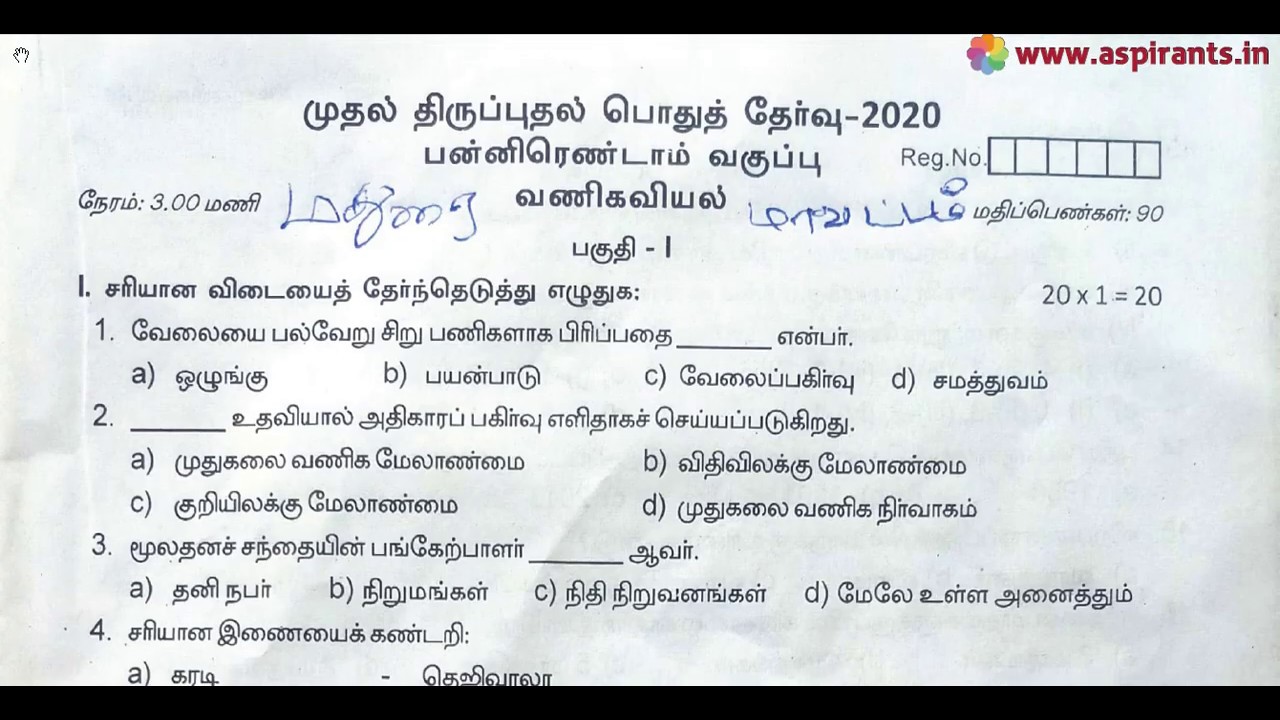 www.aspirants.in
முதல் திருப்புதல் பொதுத் தேர்வு-2020
பன்னிரெண்டாம் வகுப்பு
Reg.No.
நேரம்: 3.00 மணி மதுரை வணிகவியல் மாவட்டம் மதிப்பெண்கள்: 90
பகுதி - I
I. சரியான விடையைத் தேர்ந்தெடுத்து எழுதுக: 20 x 1 = 20
1. வேலையை பல்வேறு சிறு பணிகளாக பிரிப்பதை ________ என்பர்.
a) ஒழுங்கு b) பயன்பாடு c) வேலைப்பகிர்வு d) சமத்துவம்
2. ________ உதவியால் அதிகாரப் பகிர்வு எளிதாகச் செய்யப்படுகிறது.
a) முதுகலை வணிக மேலாண்மை b) விதிவிலக்கு மேலாண்மை
c) குறியிலக்கு மேலாண்மை d) முதுகலை வணிக நிர்வாகம்
3. மூலதனச் சந்தையின் பங்கேற்பாளர் ________ ஆவர்.
a) தனி நபர் b) நிறுமங்கள் c) நிதி நிறுவனங்கள் d) மேலே உள்ள அனைத்தும்
4. சரியான இணையைக் கண்டறி:
a) கரடி - தெஜிவாலா